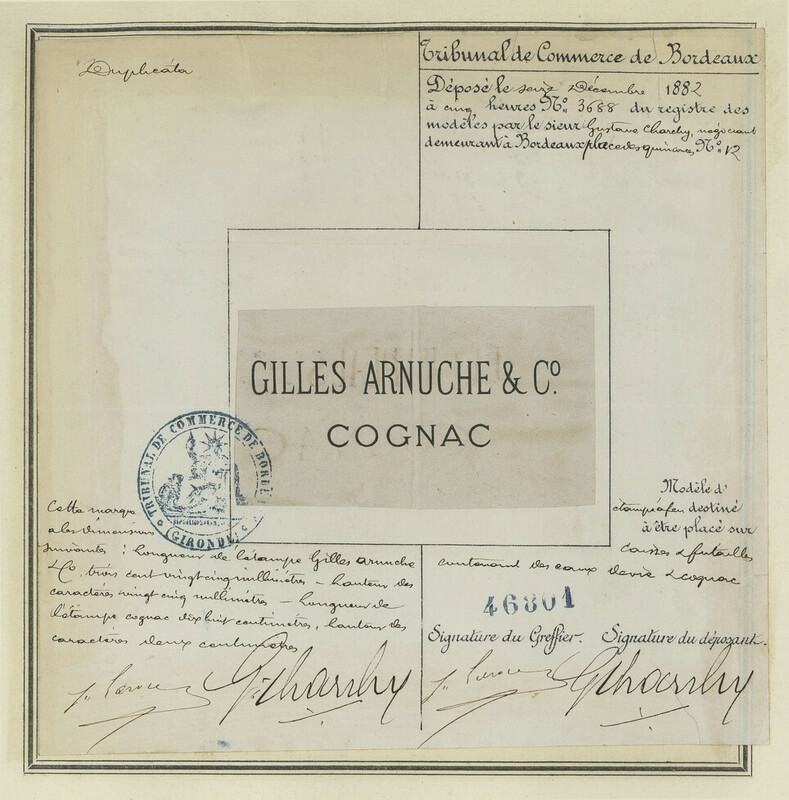 Duplicata
Tribunal de Commerce de Bordeaux
Déposé le seize Décembre 1882
à cinq heures N°. 3688 du registre des
modèles par le sieur Gustave Charchy, négociant
demeurant à Bordeaux place des quinconces N°. 12
GILLES ARNUCHE & Cº.
COGNAC
TRIBUNAL DE COMMERCE DE BORDEAUX
(GIRONDE)
Cette marque
a les dimensions
suivantes : longueur de l'étampe Gilles arnuche
& Co, trois cent vingt cinq millimètres – hauteur des
caractères vingt cinq millimètres – longueur de
l'étampe cognac dix huit centimètres, hauteur des
caractères deux centimètres
Modèle d'
étampe à feu destiné
à être placé sur
caisses & futailles
contenant des eaux de vie & cognac
46801
Signature du Greffier. Signature du déposant.